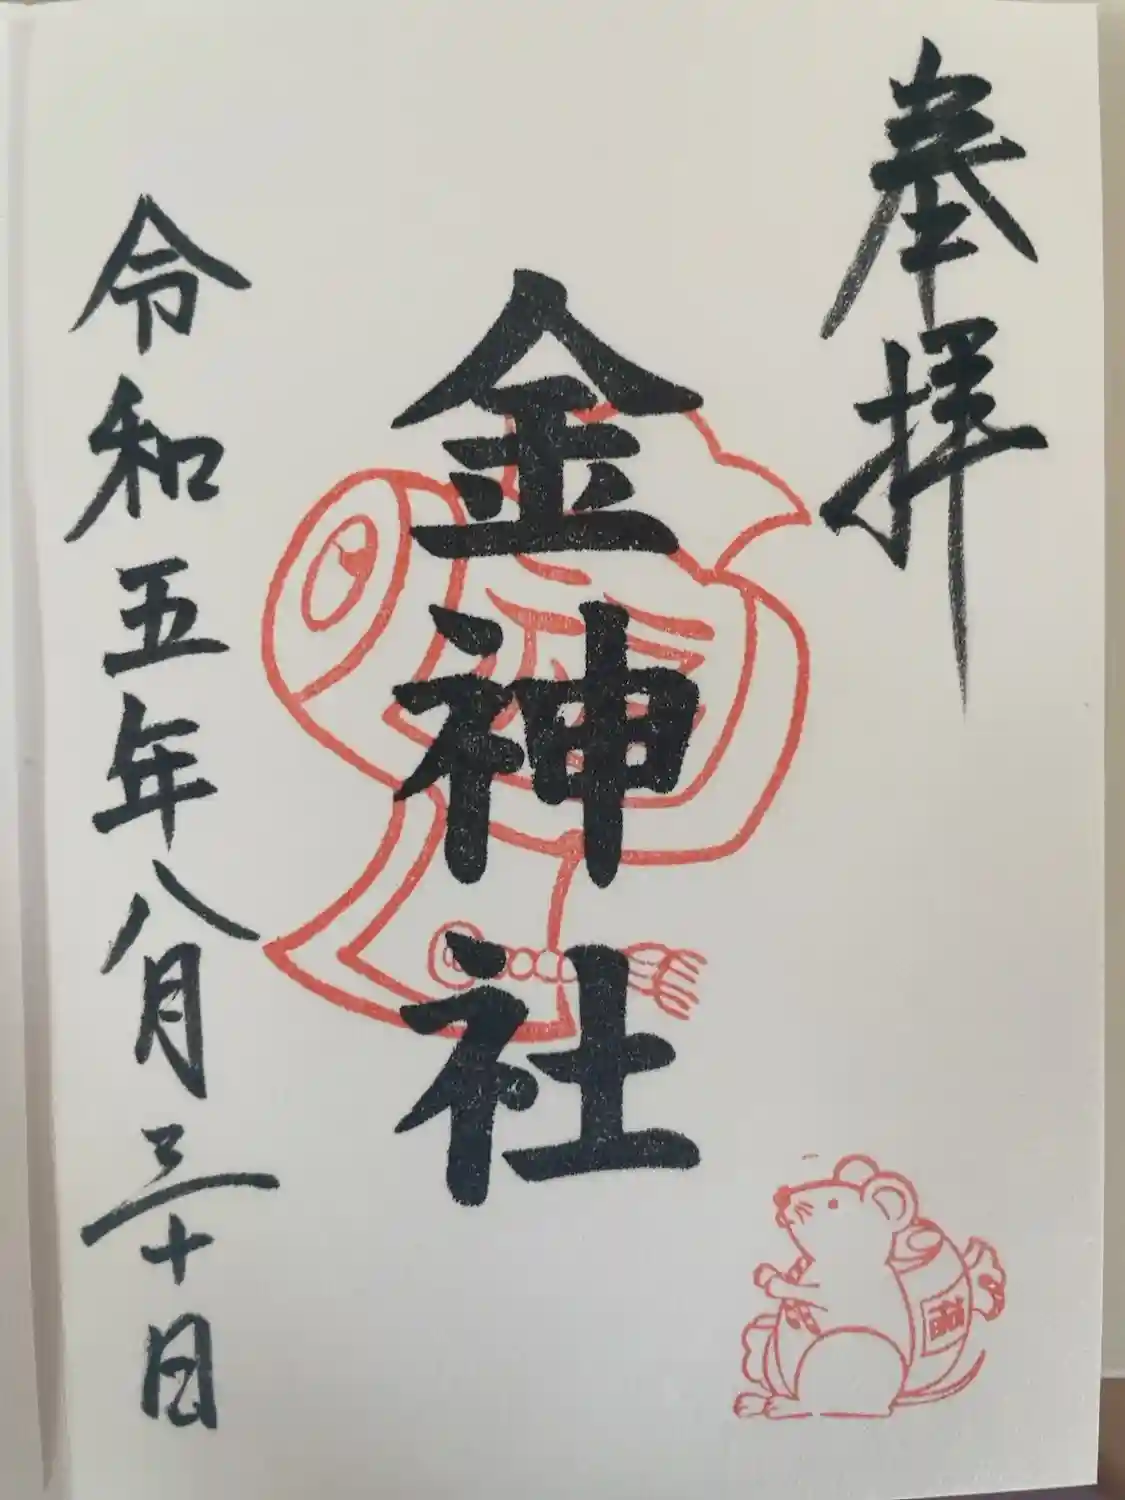 奉拝
金神社
令和五年八月三十日
福